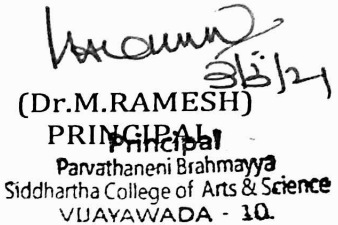 (Dr.M.RAMESH)
PRINCIPAL
Principal
Parvathaneni Brahmayya
Siddhartha College of Arts & Science
VIJAYAWADA - 10.